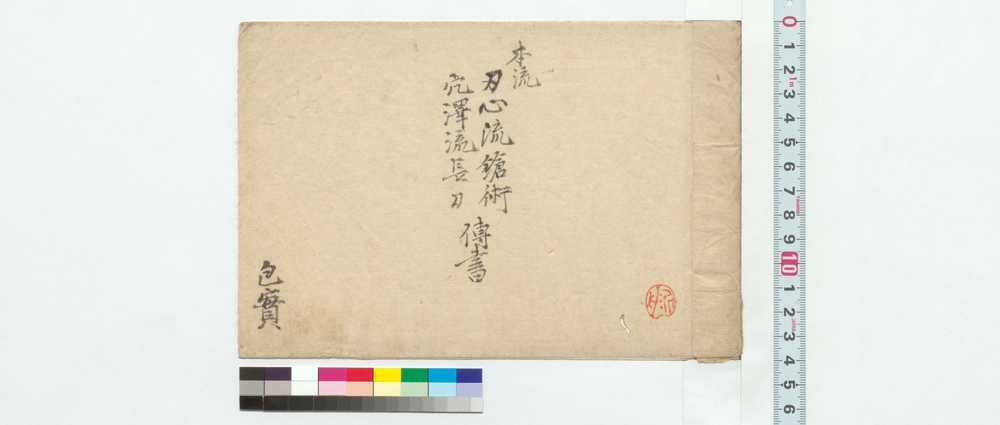 本流
刃心流鎗術
穴澤流長刀
傳書
包實
0
1
2
1m
3
4
5
6
7
8
9
10
1
2
3
4
5
6